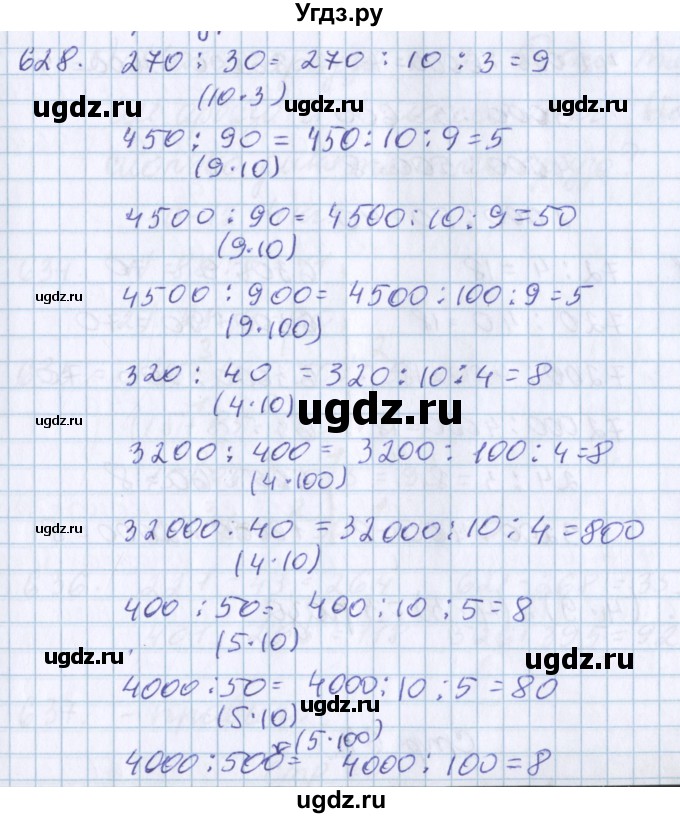 Угдз.ру
628. 270 : 30 = 270 : 10 : 3 = 9
(10·3)
ugdz.ru ugdz.ru ugdz.ru
450 : 90 = 450 : 10 : 9 = 5
(9·10)
4500 : 90 = 4500 : 10 : 9 = 50
(9·10)
ugdz.ru
4500 : 900 = 4500 : 100 : 9 = 5
(9·100)
320 : 40 = 320 : 10 : 4 = 8
(4·10)
ugdz.ru ugdz.ru
3200 : 400 = 3200 : 100 : 4 = 8
(4·100)
ugdz.ru
32000 : 40 = 32000 : 10 : 4 = 800
(4·10)
400 : 50 = 400 : 10 : 5 = 8
(5·10)
ugdz.ru ugdz.ru
4000 : 50 = 4000 : 10 : 5 = 80
(5·10)
ugdz.ru
(5·100)
4000 : 500 = 4000 : 100 = 8
ugdz.ru